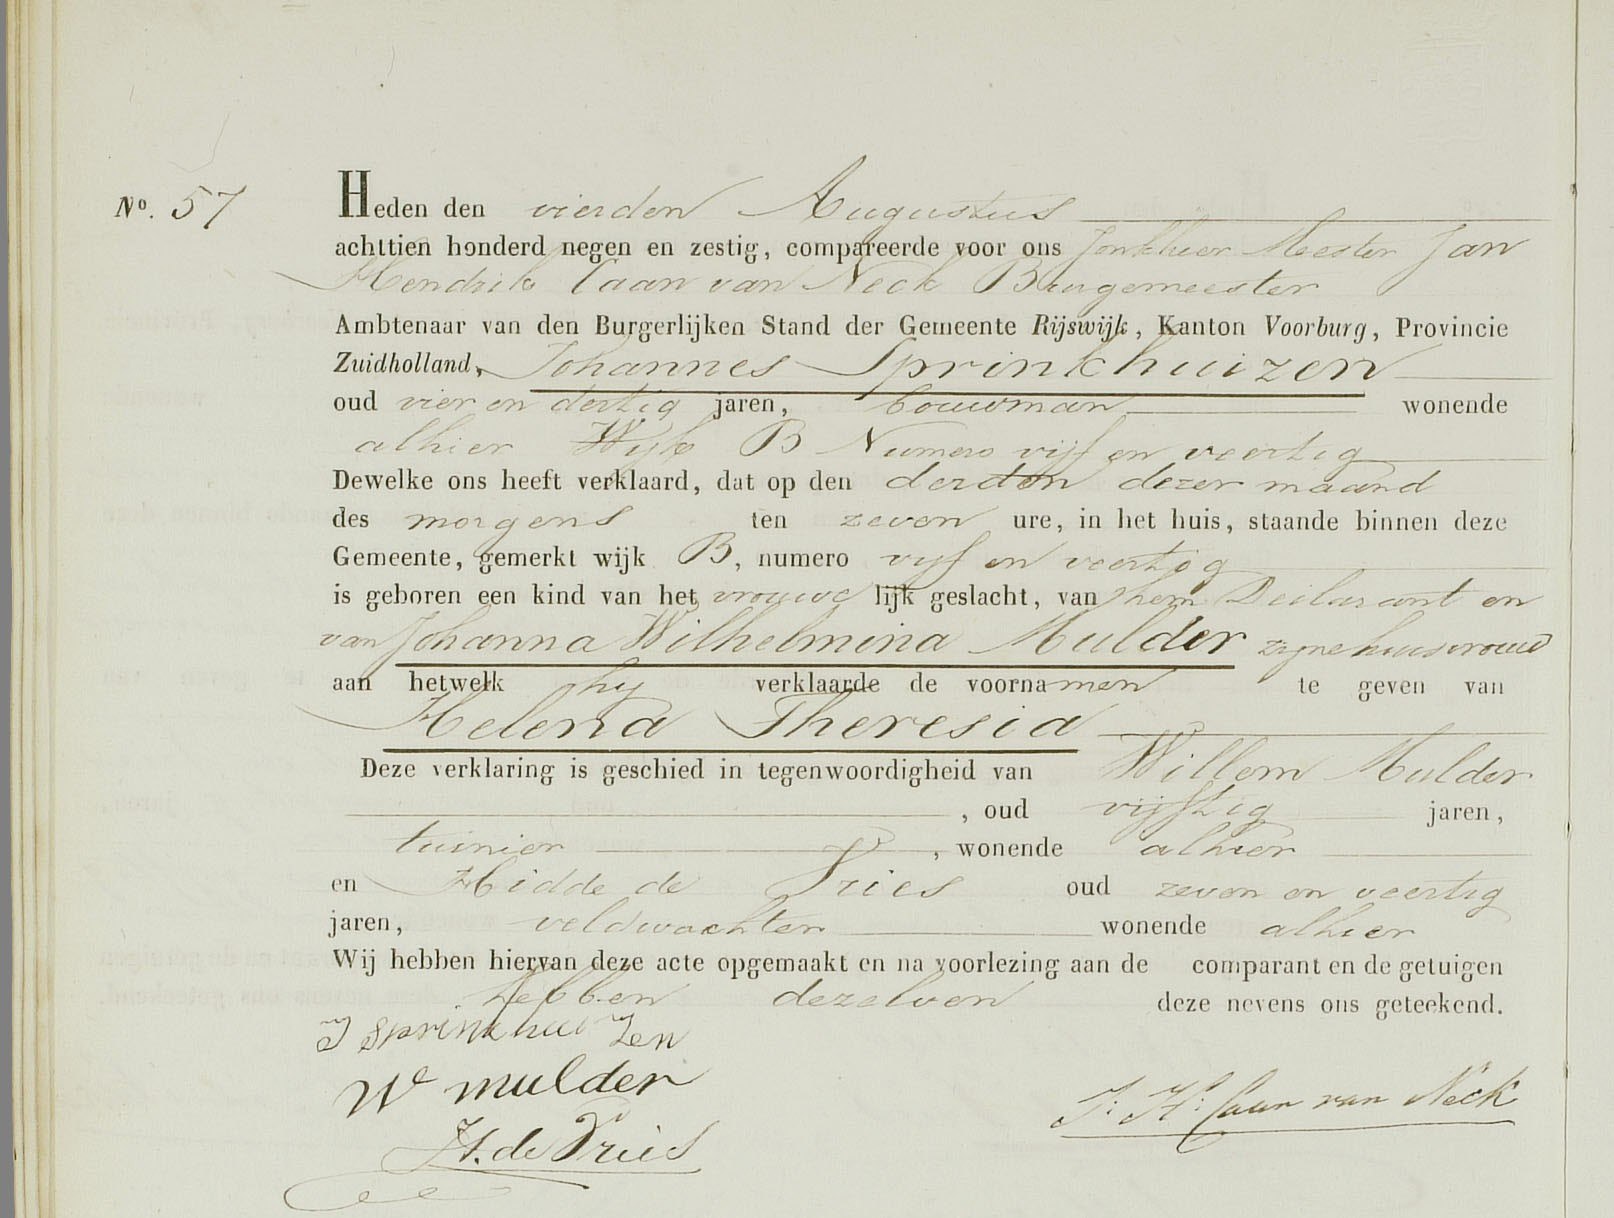 No. 57
Heden den vierden Augustus
achttien honderd negen en zestig, compareerde voor ons Jonkheer Meester Jan
Hendrik Caan van Neck Burgemeester
Ambtenaar van den Burgerlijken Stand der Gemeente Rijswijk, Kanton Voorburg, Provincie
Zuidholland, Johannes Sprinkhuizen
oud vier en dertig jaren, bouwman wonende
alhier Wijk B Numero vijf en veertig
Dewelke ons heeft verklaard, dat op den derden dezer maand
des morgens ten zeven ure, in het huis, staande binnen deze
Gemeente, gemerkt wijk B, numero vijf en veertig
is geboren een kind van het vrouwe lijk geslacht, van hem Declarant en
van Johanna Wilhelmina Mulder zijne huisvrouw
aan hetwelk hij verklaarde de voornamen te geven van
Helena Theresia
Deze verklaring is geschied in tegenwoordigheid van Willem Mulder
, oud vijftig jaren,
tuinier , wonende alhier
en Hidde de Vries oud zeven en veertig
jaren, veldwachter wonende alhier
Wij hebben hiervan deze acte opgemaakt en na voorlezing aan de comparant en de getuigen
hebben dezelven deze nevens ons geteekend.
J Sprinkhuizen
W mulder
J. H. Caan van Neck
H. de Vries